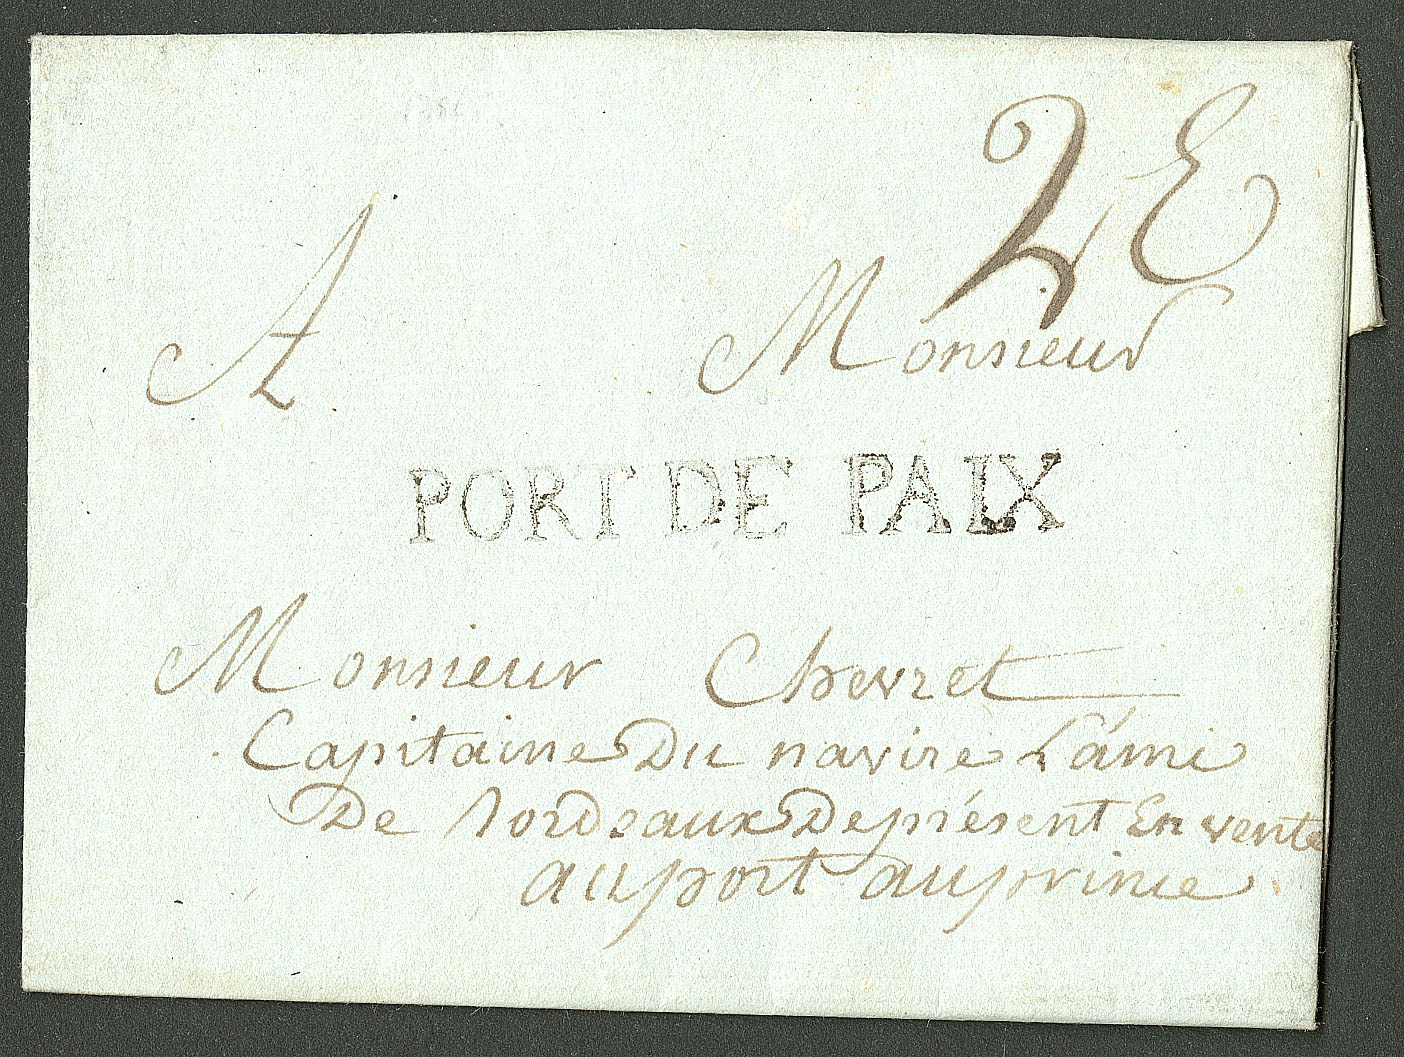 2 E
A Monsieur
PORT DE PAIX
Monsieur Chevret
Capitaine Du navire L'ámi
De Bordeaux De présent En vente
au port au prince